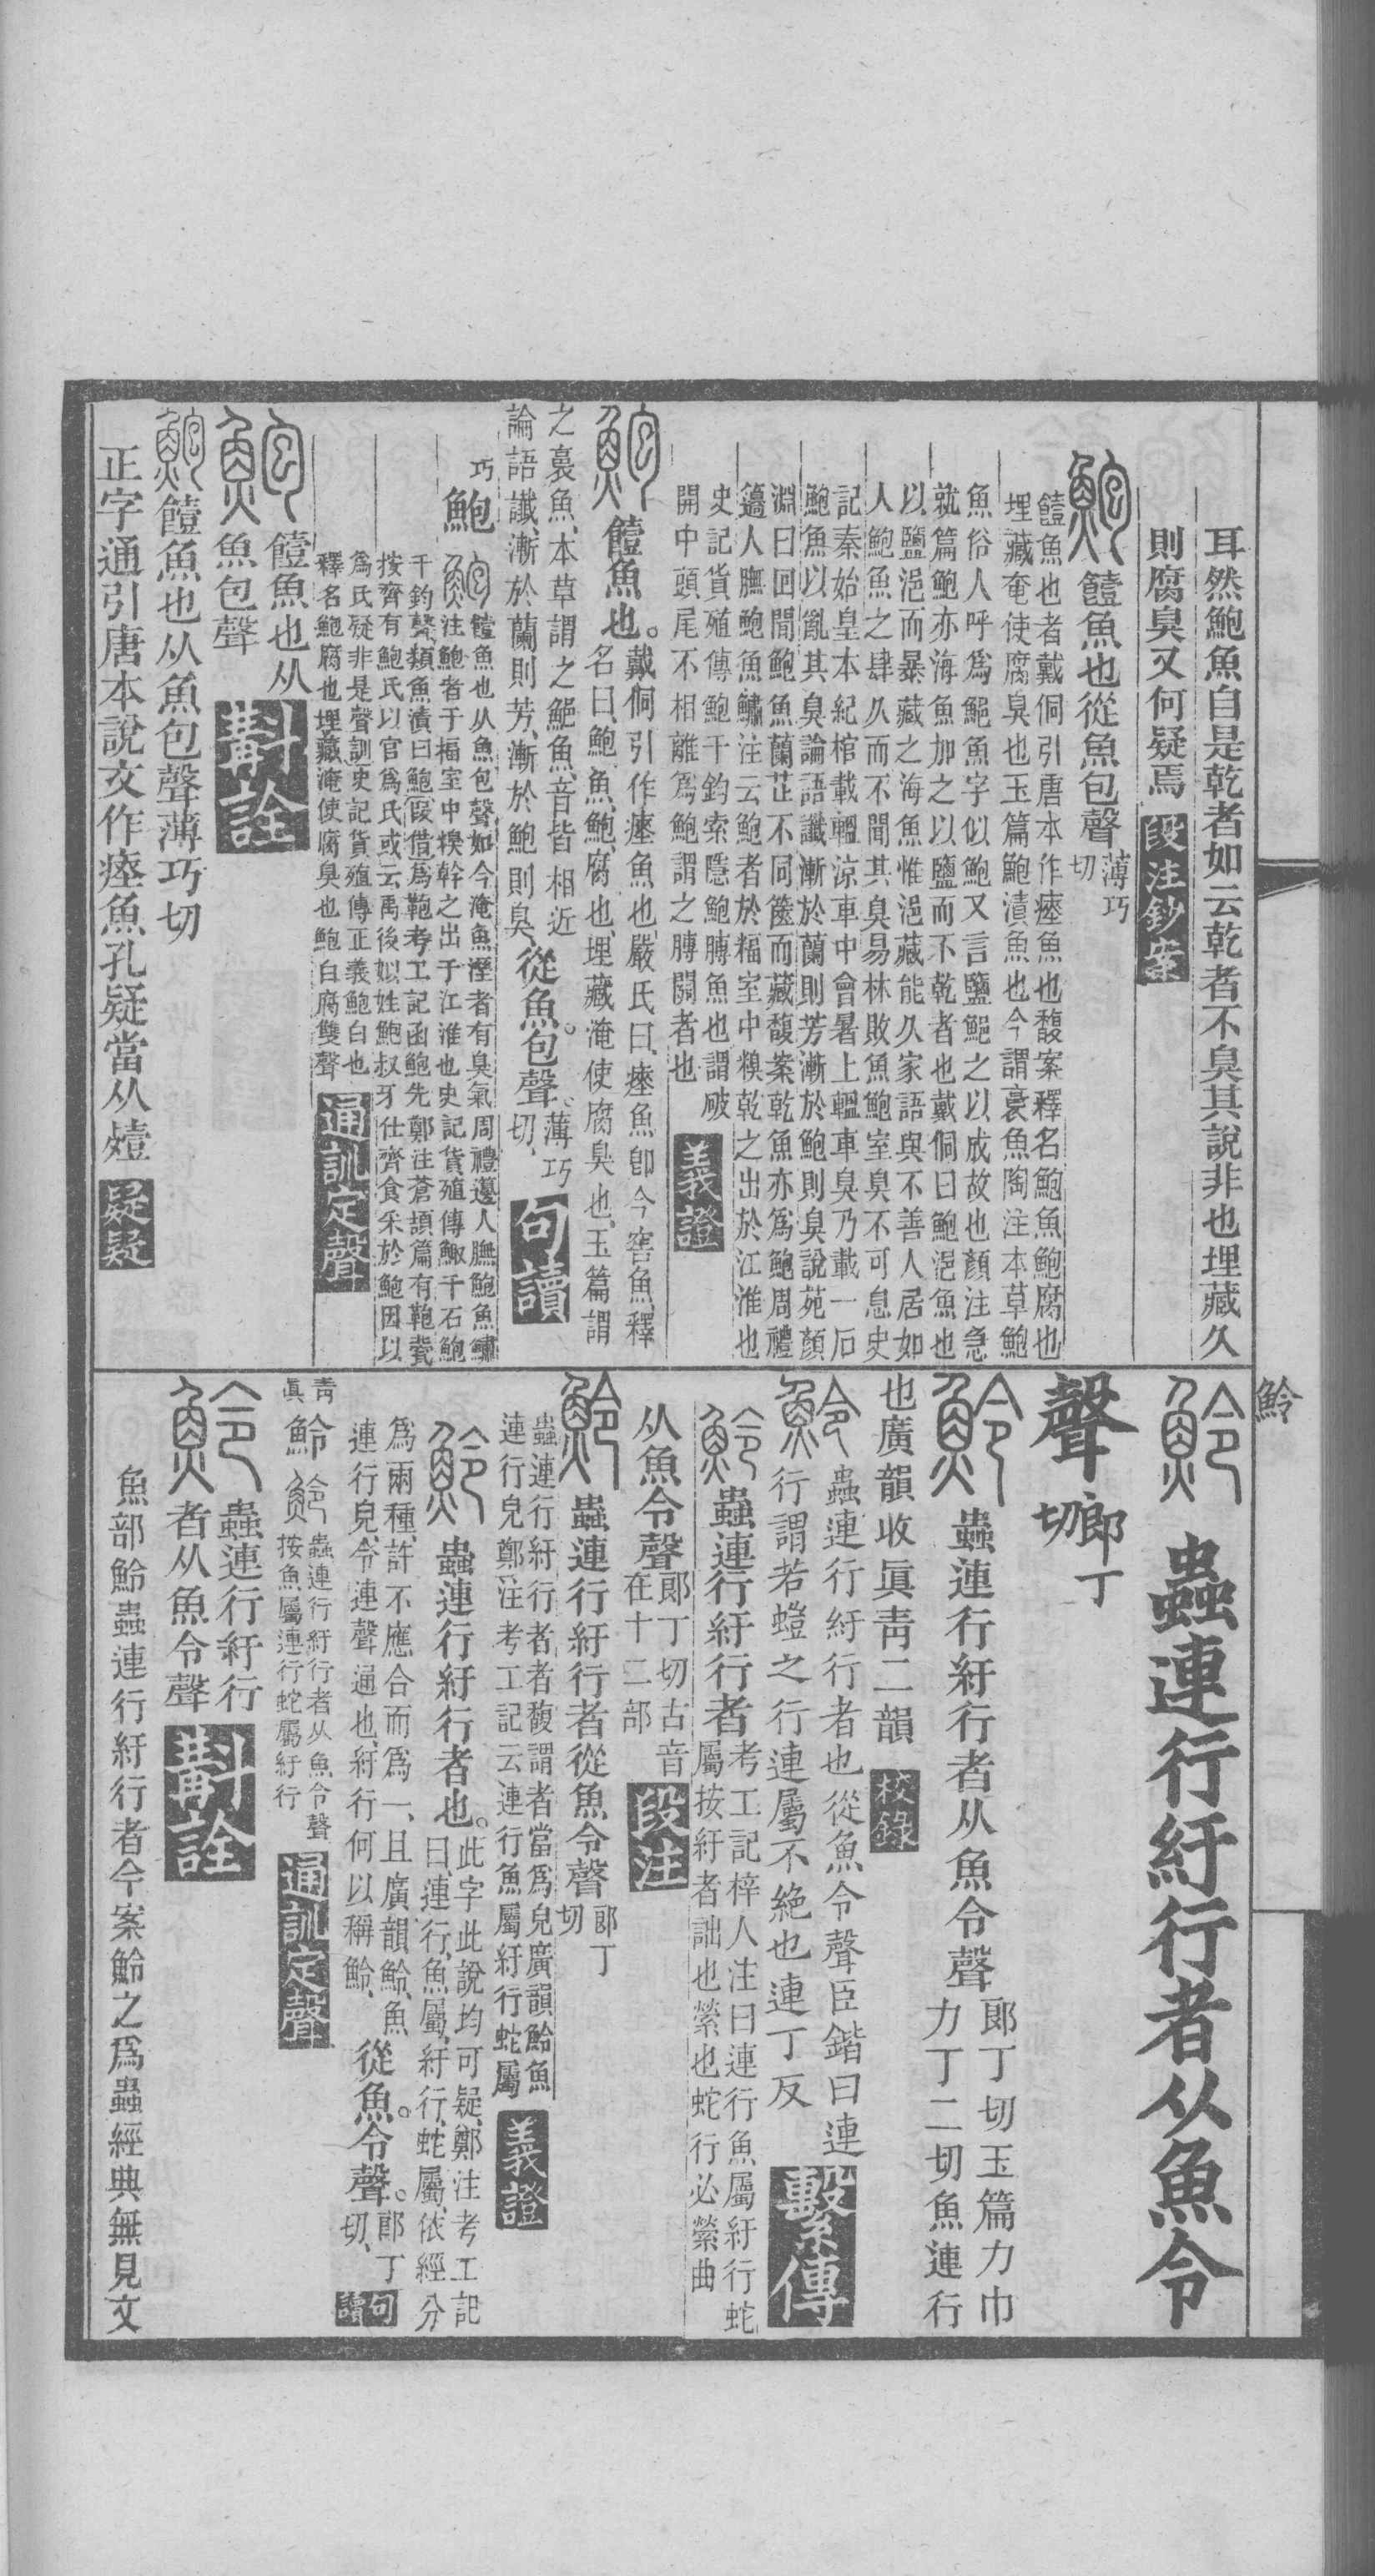 耳然鮑魚自是乾者如云乾者不臭其說非也埋藏久
則腐臭又何疑焉 段注鈔案
鮑 饐魚也從魚包聲 薄巧
切
饐魚也者戴侗引唐本作瘞魚也馥案釋名鮑魚鮑腐也
埋藏奄使腐臭也玉篇鮑漬魚也今謂裛魚陶注本草鮑
魚俗人呼爲鮑魚字似鮑又言鹽鮑之以成故也顏注急
就篇鮑亦海魚加之以鹽而不乾者也戴侗曰鮑浥魚也
以鹽浥而暴藏之海魚惟浥藏能久家語與不善人居如
人鮑魚之肆久而不聞其臭易林敗魚鮑室臭不可息史
記秦始皇本紀棺載轀涼車中會暑上轀車臭乃載一石
鮑魚以亂其臭論語讖漸於蘭則芳漸於鮑則臭說苑顏
淵曰回聞鮑魚蘭芷不同篋而藏馥案乾魚亦爲鮑周禮
籩人膴鮑魚鱐注云鮑者於糒室中糗乾之出於江淮也
史記貨殖傳鮑千鈞索隱鮑膊魚也謂破
開中頭尾不相離爲鮑謂之膊關者也 義證
鮑 饐魚也。 戴侗引作瘞魚也、嚴氏曰、瘞魚卽今窖魚、釋
名曰、鮑魚、鮑、腐也、埋藏淹使腐臭也、玉篇謂
之裛魚、本草謂之鮑魚、音皆相近
論語讖、漸於蘭則芳、漸於鮑則臭 從魚。包聲。 薄巧
切、 句讀
巧 鮑 鮑 饐魚也从魚包聲如今淹魚溼者有臭氣周禮籩人膴鮑魚鱐
注鮑者于楅室中糗幹之出于江淮也史記貨殖傳鯫千石鮑
千鈞聲類魚漬曰鮑叚借爲鞄考工記函鮑先鄭注蒼頡篇有鞄㼱
按齊有鮑氏以官爲氏或云禹後姒姓鮑叔牙仕齊食采於鮑因以
爲氏疑非是聲訓史記貨殖傳正義鮑白也
釋名鮑腐也埋藏淹使腐臭也鮑白腐雙聲 通訓定聲
鮑 饐魚也从
魚包聲 斠詮
鮑 饐魚也从魚包聲薄巧切
正字通引唐本說文作瘞魚孔疑當从㙪 㬪疑
鮯
魿 蟲連行紆行者从魚令
聲 郎丁
切
魿 蟲連行紆行者从魚令聲 郎丁切玉篇力巾
力丁二切魚連行
也廣韻收眞靑二韻 校錄
魿 蟲連行紆行者也從魚令聲臣鍇曰連
行謂若螘之行連屬不絶也連丁反 繫傳
魿 蟲連行紆行者 考工記梓人注曰連行魚屬紆行蛇
屬按紆者詘也縈也蛇行必縈曲
从魚令聲 郎丁切古音
在十二部 段注
魿 蟲連行紆行者從魚令聲 郎丁
切
蟲連行紆行者者馥謂者當爲皃廣韻魿魚
連行皃鄭注考工記云連行魚屬紆行蛇屬 義證
魿 蟲連行紆行者也。 此字此說均可疑、鄭注考工記
曰、連行、魚屬、紆行、蛇屬、依經分
爲兩種、許不應合而爲一、且廣韻魿、魚
連行皃、令連聲通也、紆行何以稱魿、 從魚。令聲。 郎丁
切、 句讀
靑
眞 魿 魿 蟲連行紆行者从魚令聲
按魚屬連行蛇屬紆行 通訓定聲
魿 蟲連行紆行
者从魚令聲 斠詮
魚部魿蟲連行紆行者今案魿之爲蟲經典無見文